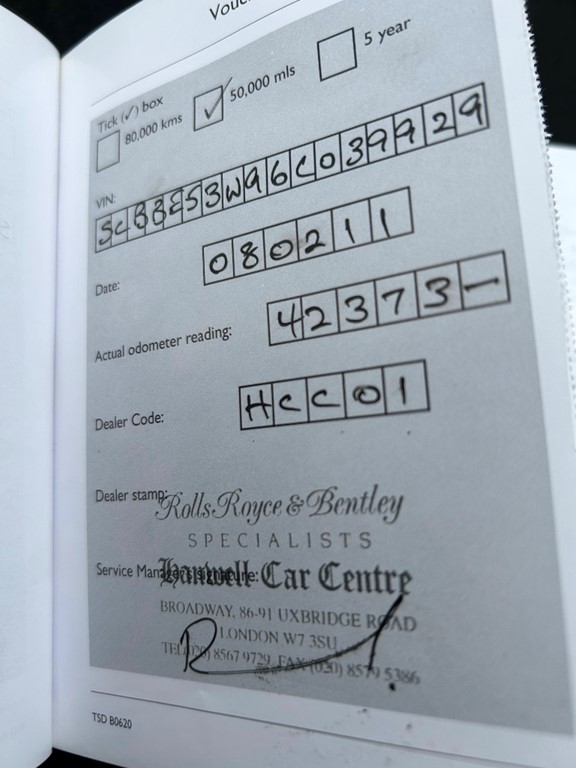 Tick (✓) box
80,000 kms
✓ 50,000 mls
5 year
VIN:
SCBBE53W96C039929
Date:
080211
Actual odometer reading:
42373–
Dealer Code:
HCC01
Dealer stamp:
Rolls-Royce & Bentley
SPECIALISTS
Service Manager's signature:
Hanwell Car Centre
BROADWAY, 86-91 UXBRIDGE ROAD
LONDON W7 3SU
TEL (020) 8567 9729 FAX (020) 8579 5386
TSD B0620